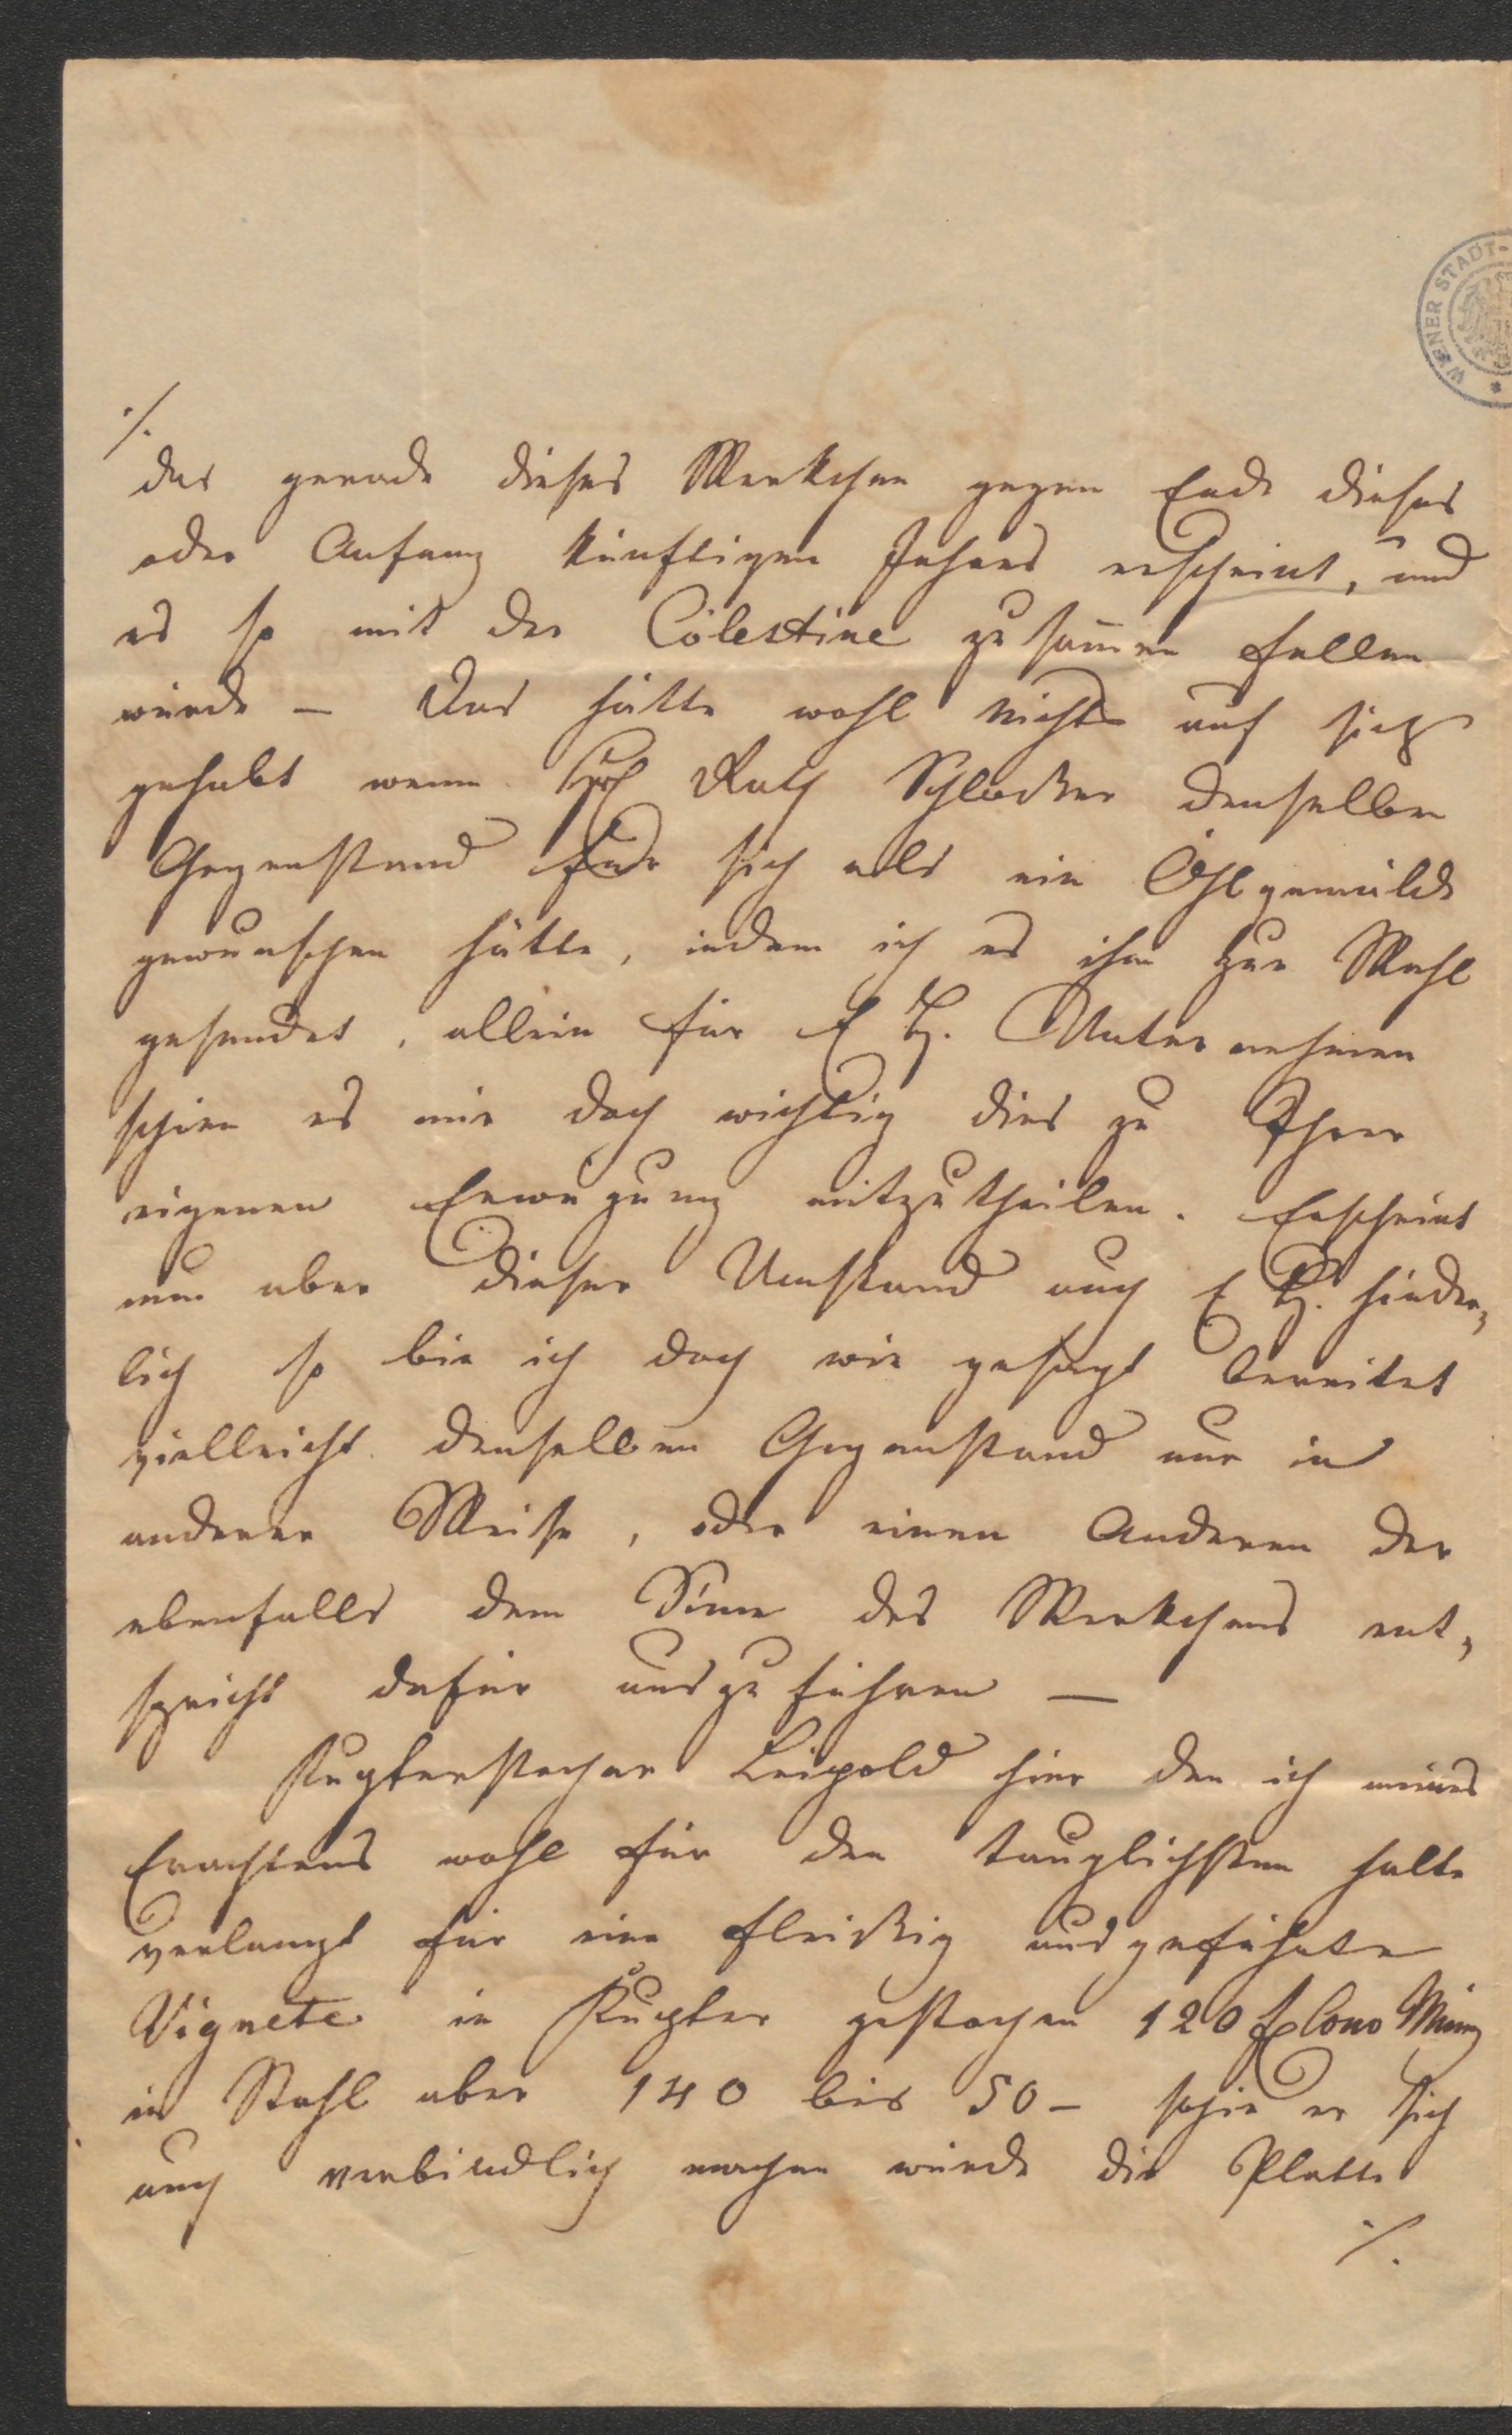 WIENER STADT-
./.
das gerade dieses Werkchen gegen Ende dieses
oder Anfang künftigen Jahres erscheint, und
es so mit der Cölestine zusam̄en fallen
würde – Das hätte wohl nichts auf sich
gehabt wenn H Rath Schlosser denselben
Gegenstand für sich als ein Öhlgemälde
gewunschen hätte, indem ich es ihm zur Wahl
gesendet, allein für E H. Unternehmen
schien es mir doch wichtig dies zu Ihrer
eigenen Erwägung mitzutheilen. Erscheint
nun aber dieser Umstand auch E H. hinder,
lich so bin ich doch wie gesagt bereitet
vielleicht denselben Gegenstand nur in
anderer Weise, oder einen Anderen der
ebenfalls dem Sinne des Werkchens ent,
spricht dafür auszuführen —
Kupferstecher Leipold hier den ich meines
Erachtens wohl für den tauglichsten halte
verlangt für eine fleißig ausgeführte
Vignete in Kupfer gestochen 120 f Conv Münz
in Stahl aber 140 bis 50 – er sich
auch verbindlich machen würde die Platte
./.